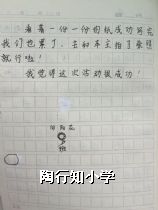 看着一份一份的纸成功写完
我们也累了,去和车主拍了张照
就行啦!
我觉得这次活动很成功!
陶行知小学